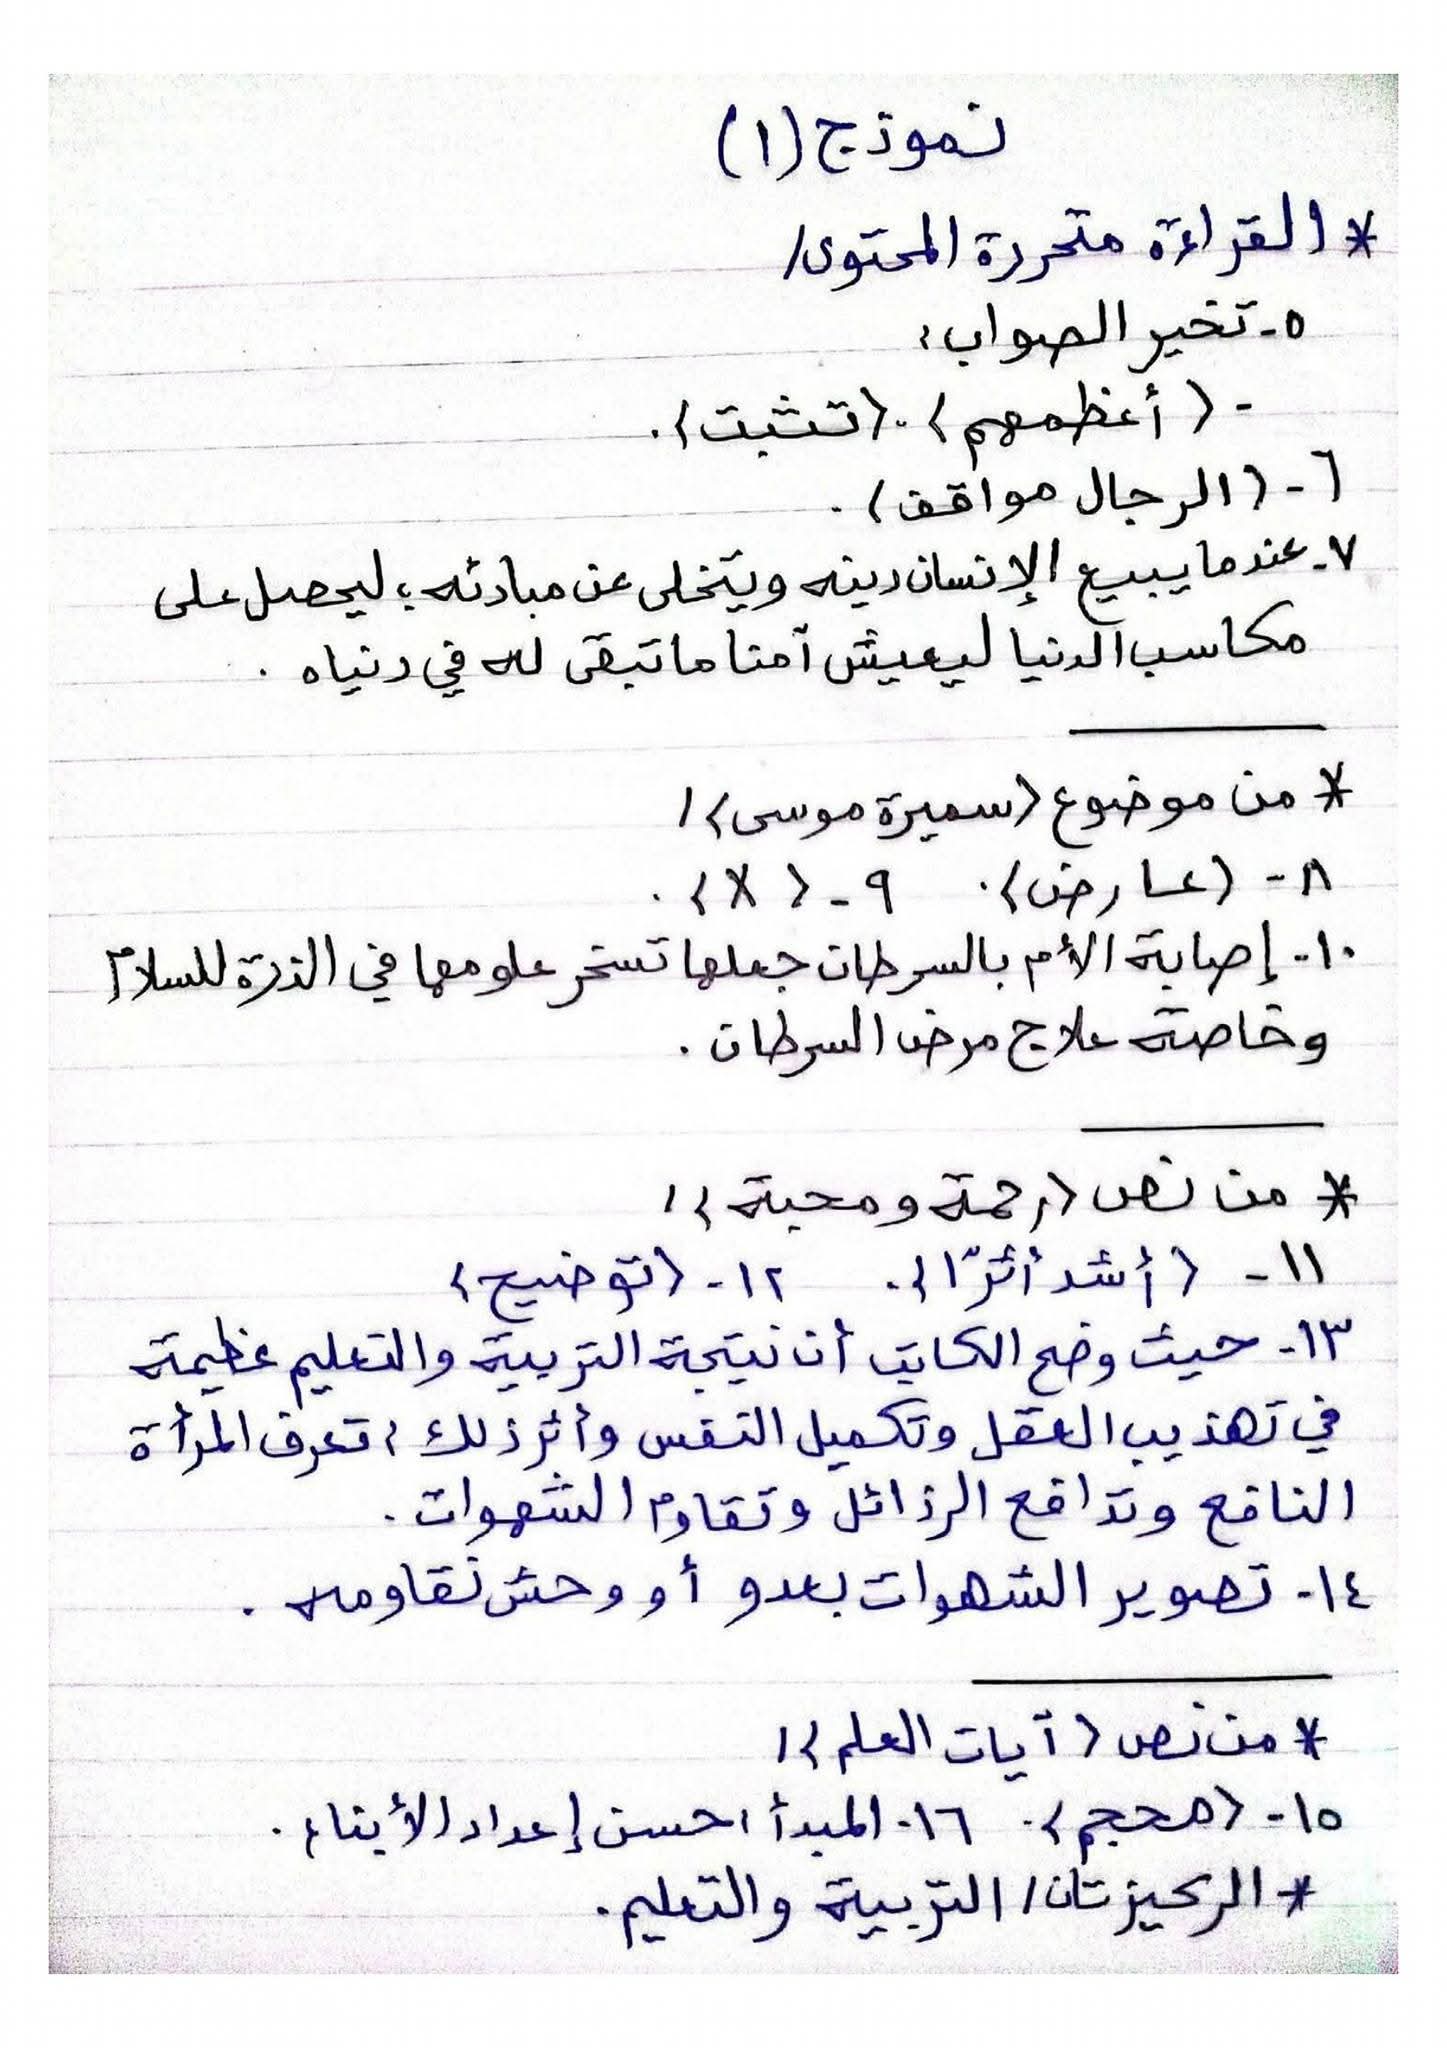 نموذج (١)
* القراءة متحررة المحتوى/
٥- تخير الصواب:
- (أعظمهم). (تثبت).
٦- (الرجال مواقف).
٧- عندما يبيع الإنسان دينه ويتخلى عن مبادئه؛ ليحصل على
مكاسب الدنيا ليعيش آمنا ما تبقى له في دنياه.
* من موضوع (سميرة موسى)/
٨- (عارض). ٩- (X).
١٠- إصابة الأم بالسرطان جعلها تسخر علومها في الذرة للسلام
وخاصة علاج مرض السرطان.
* من نص (رحمة ومحبة)/
١١- (أشد أثرًا). ١٢- (توضيح)
١٣- حيث وضح الكاتب أن نتيجة التربية والتعليم عظيمة
في تهذيب العقل وتكميل النفس وأثر ذلك: تعرف المرأة
النافع وتدافع الرذائل وتقاوم الشهوات.
١٤- تصوير الشهوات بعدو أو وحش نقاومه.
* من نص (آيات العلم)/
١٥- (محجم). ١٦- المبدأ: حسن إعداد الأبناء.
* الركيزتان/ التربية والتعليم.